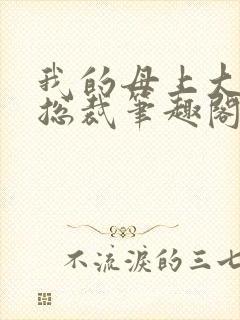 我的母上大
总裁笔趣阁
不流淚的三七